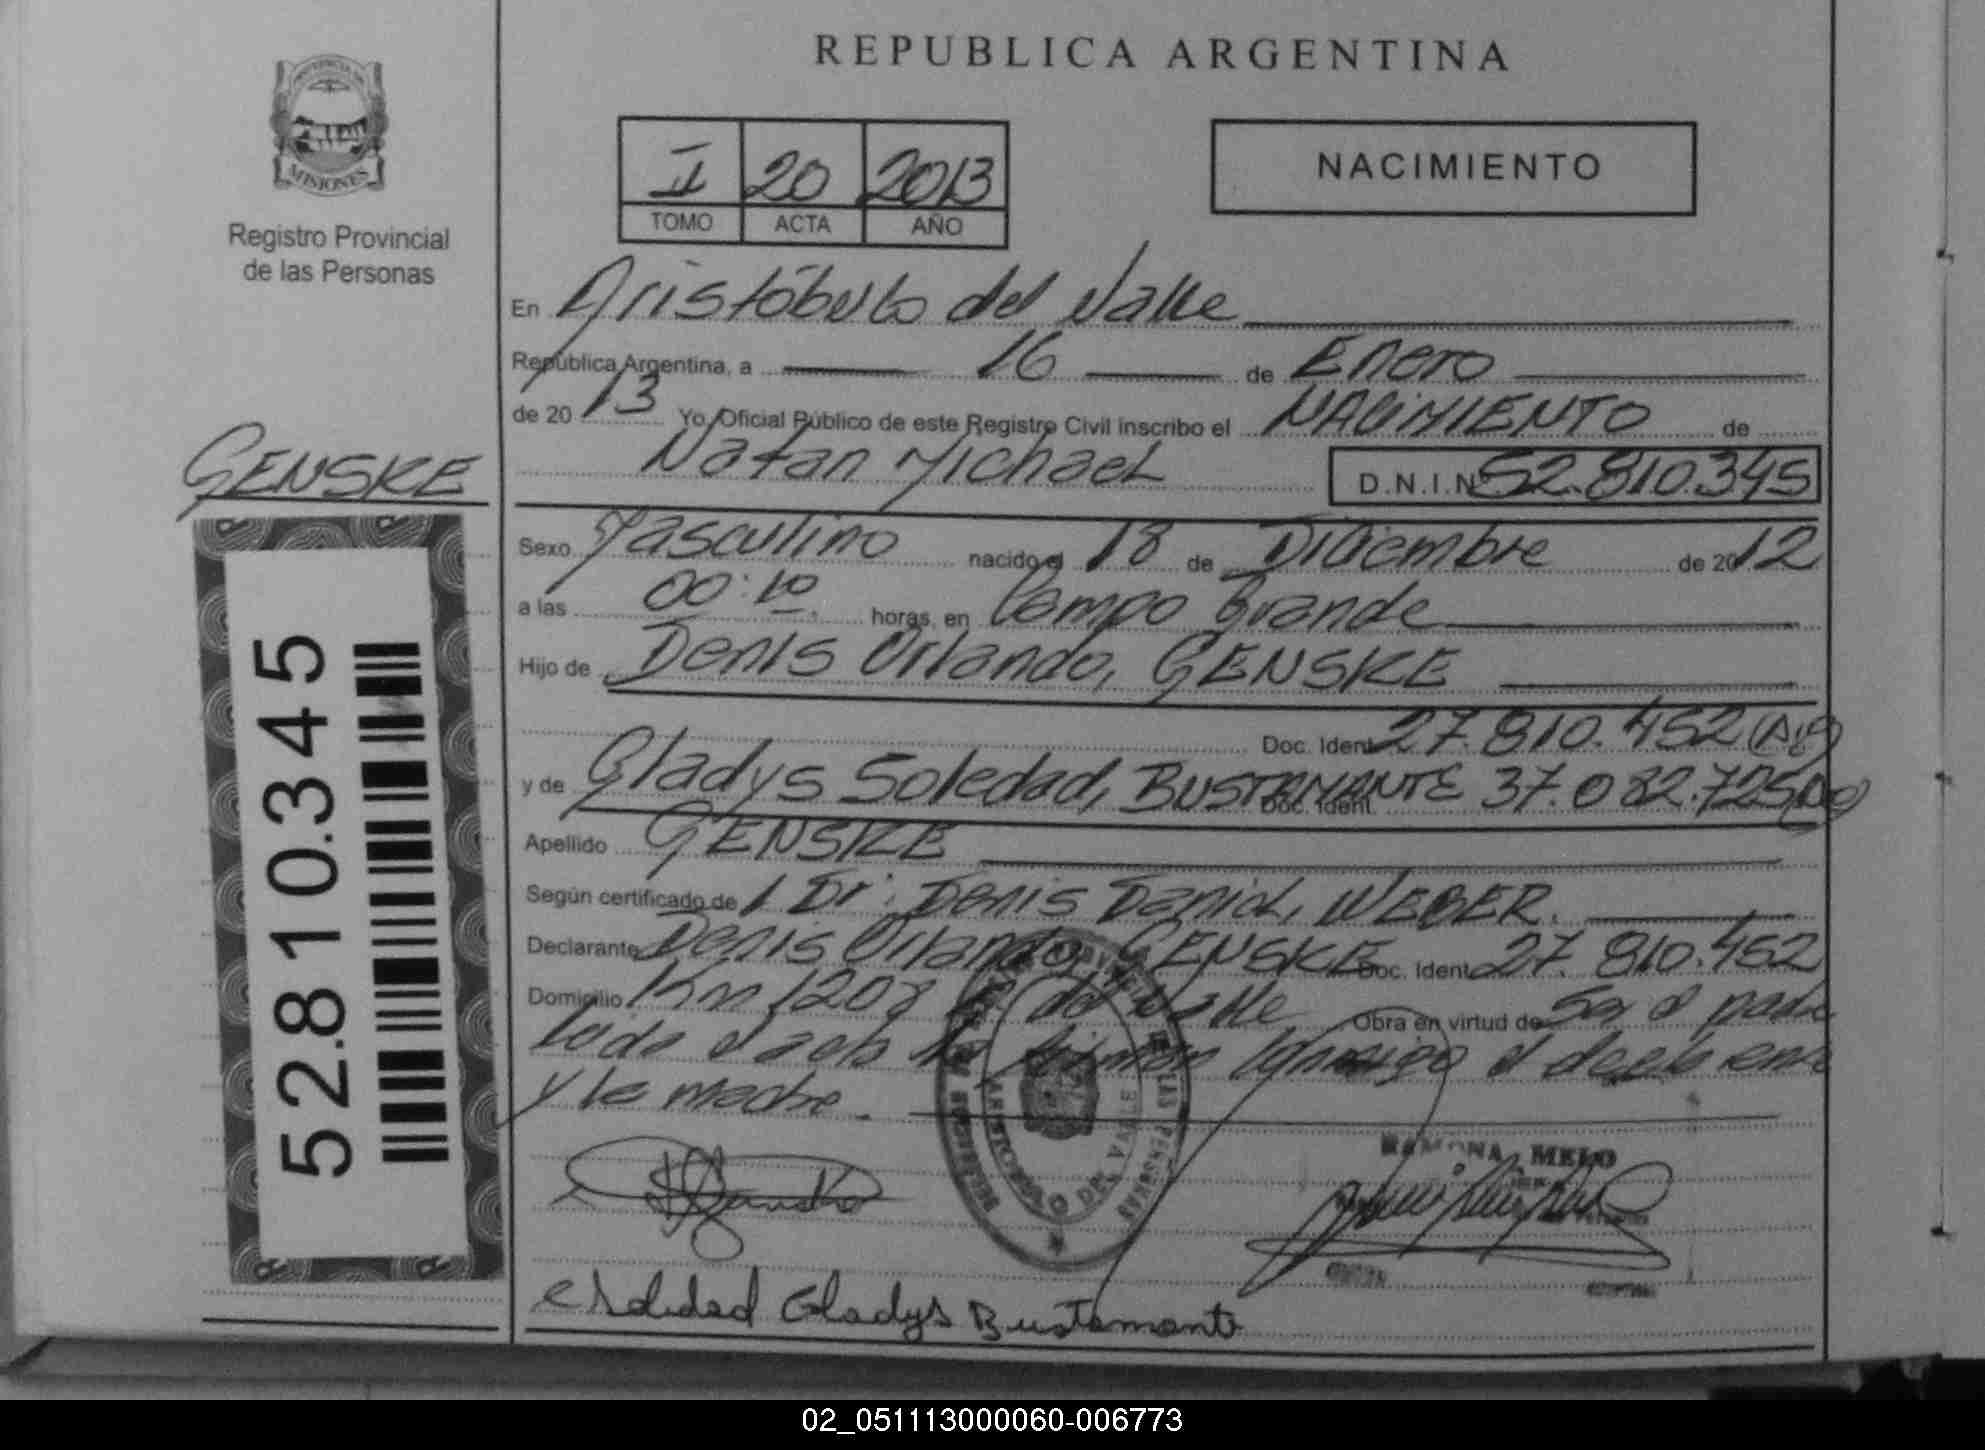 REPUBLICA ARGENTINA
MISIONES
Registro Provincial
de las Personas
II 20 2013
TOMO ACTA AÑO
NACIMIENTO
En Aristóbulo del Valle
República Argentina, a 16 de Enero
de 20 13 Yo, Oficial Público de este Registro Civil inscribo el NACIMIENTO de
GENSKE
Natan Michael D.N.I.N 52.810.345
Sexo Masculino nacido el 18 de Diciembre de 20 12
a las 00:10 horas, en Campo Grande
Hijo de Denis Orlando, GENSKE
Doc. Ident. 27.810.452
y de Gladys Soledad, BUSTAMANTE Doc. Ident. 37.082.725
Apellido GENSKE
Según certificado de Dr: Denis Daniel, WEBER.
Declarante Denis Orlando, GENSKE Doc. Ident. 27.810.452
Domicilio Km 1208 A. del Valle Obra en virtud de Ser el padre
leida el acta la firman conmigo el declarante
y la madre.
52.810.345
ARISTOBULO DEL VALLE
DE LAS PERSONAS
RAMONA MELO
Soledad Gladys Bustamante
02_051113000060-006773